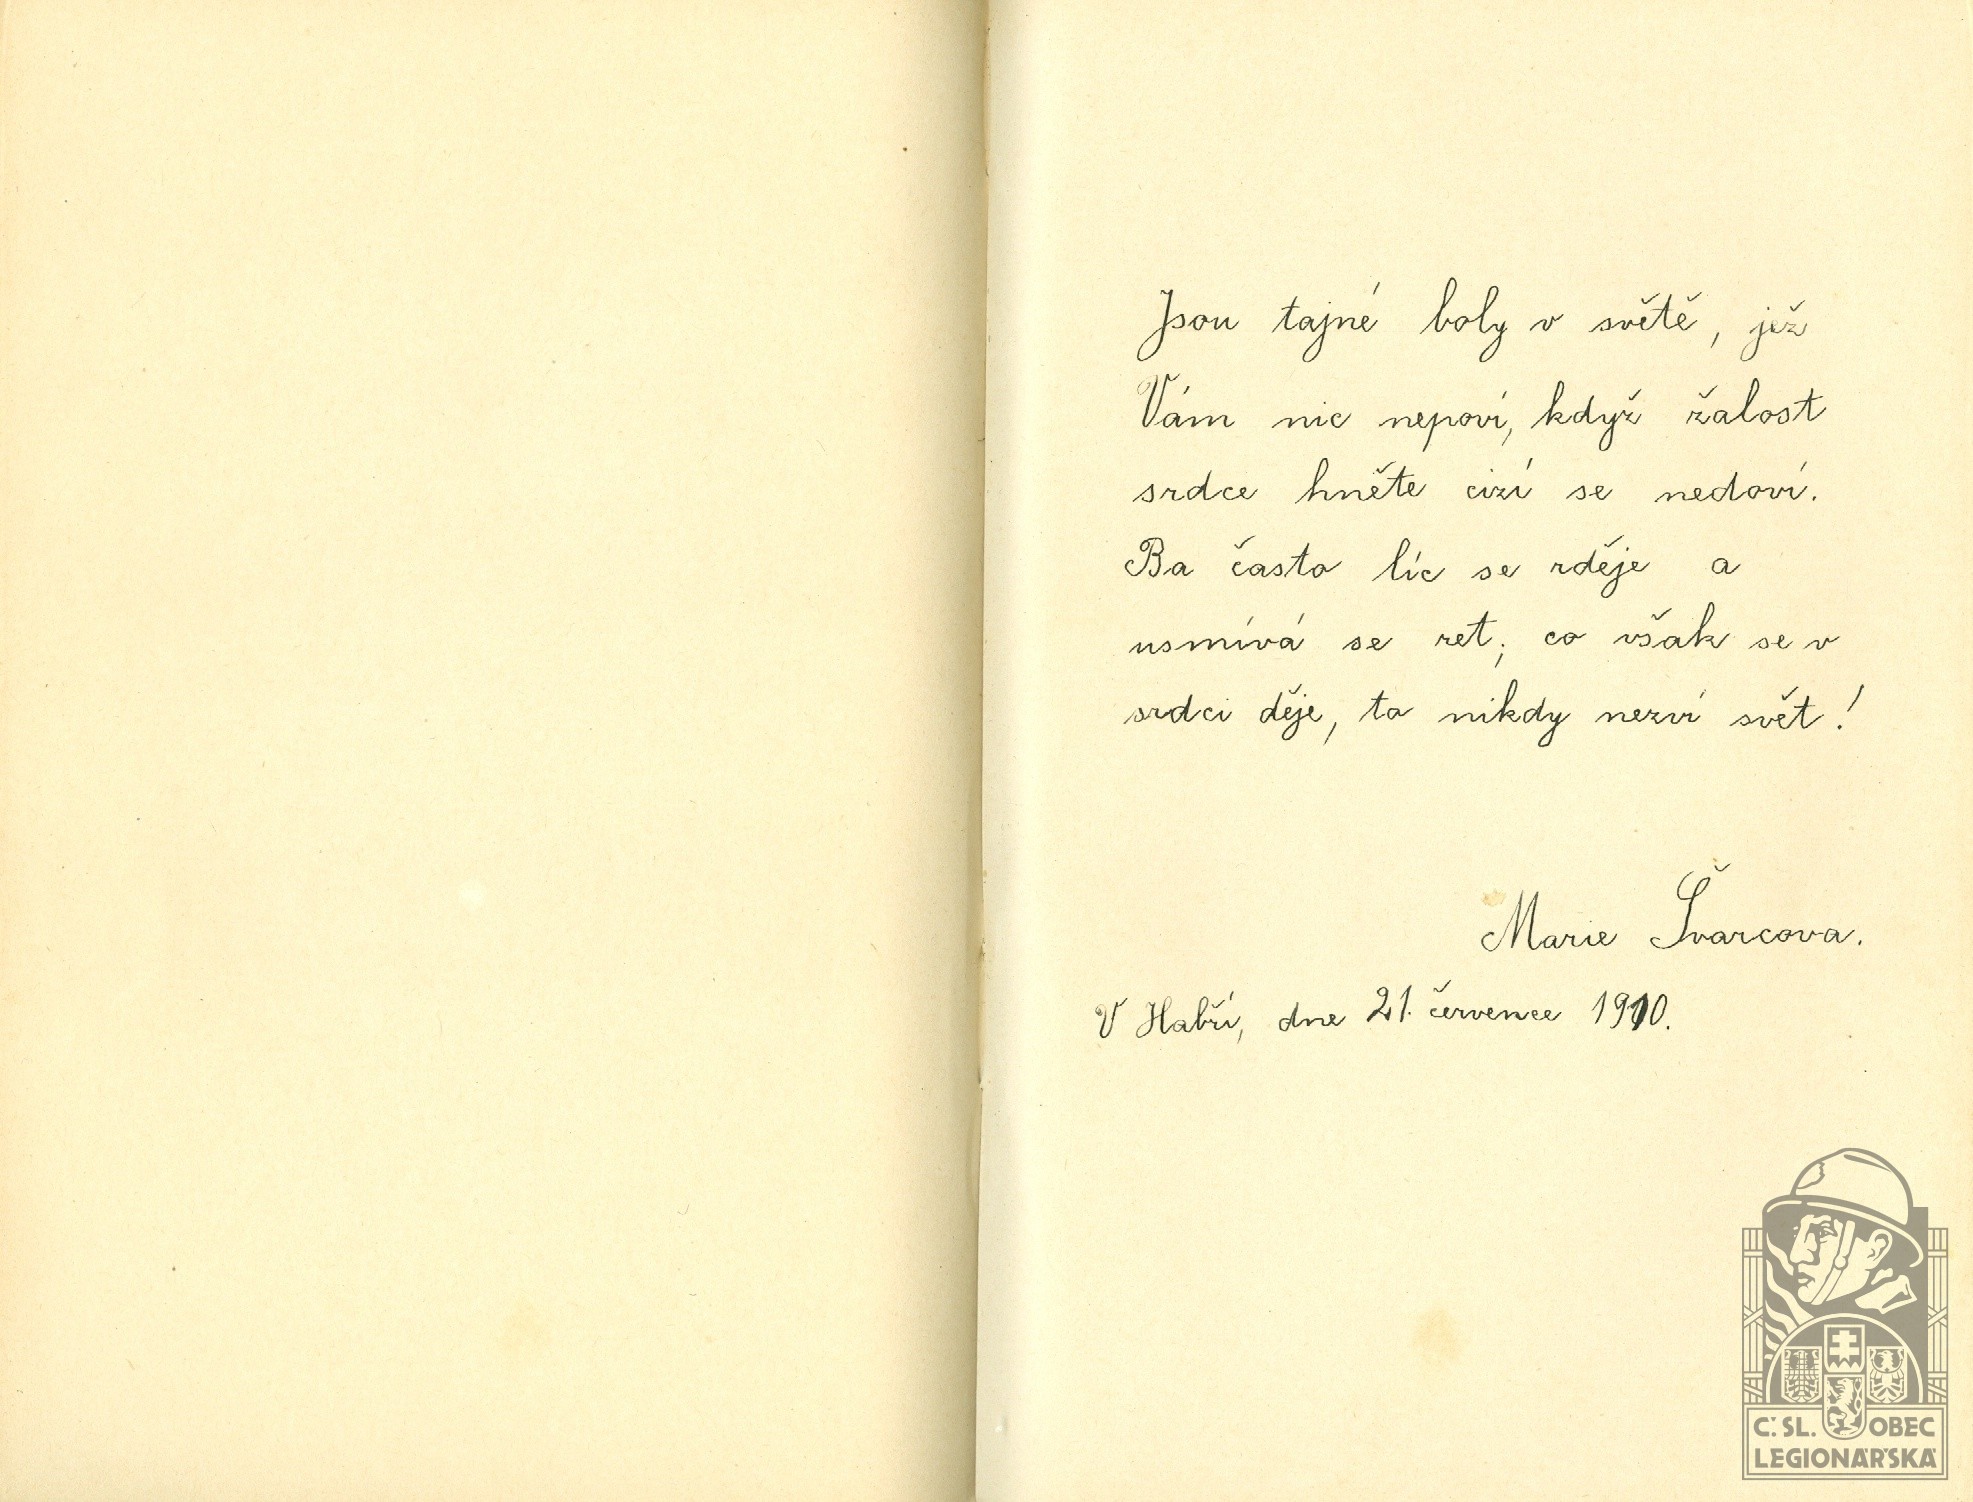 Jsou tajné boly v světě, jež
Vám nic nepoví, když žalost
srdce hněte cizí se nedoví.
Ba často líc se rděje a
usmívá se ret; co však se v
srdci děje, to nikdy nezví svět!
Marie Švarcova.
V Habří, dne 21. července 1910.
Č. SL. OBEC
LEGIONÁŘSKÁ